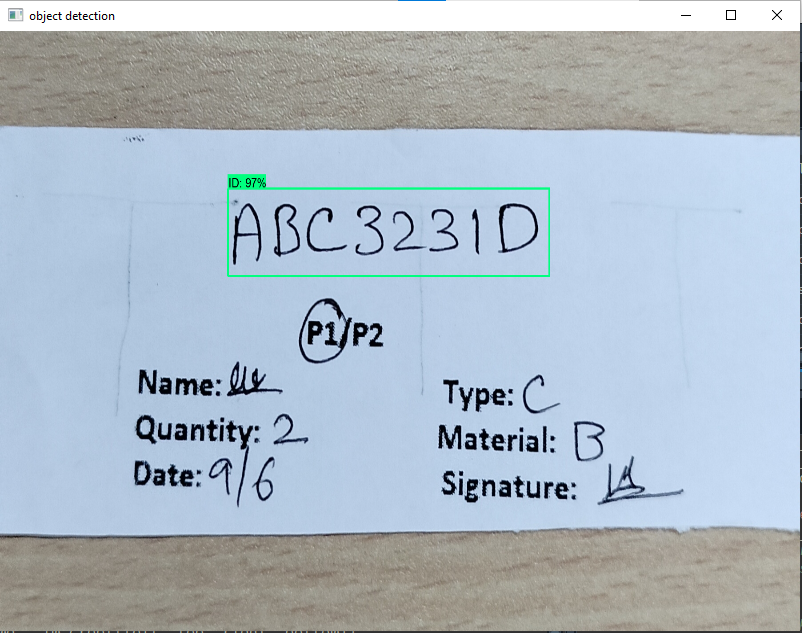 object detection
ID: 97%
ABC3231D
P1/P2
Name:
Quantity: 2
Date: 9/6
Type: C
Material: B
Signature: